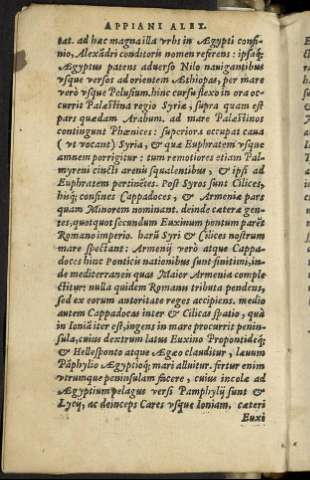 APPIANI ALEX.
tat. ad hæc magna illa vrbs in Ægypti confi-
nio, Alexãdri conditoris nomen referens: ipsaq́;
Ægyptus patens aduerso Nilo nauigantibus
vsque versos ad orientem Æthiopas, per mare
verò vsque Pelusium. hinc cursu flexo in ora oc-
currit Palæstina regio Syriæ, supra quam est
pars quædam Arabum. ad mare Palæstinos
contingunt Phœnices: superiora occupat caua
( vt vocant) Syria, & quæ Euphratem vsque
amnem porrigitur: tum remotiores etiam Pal-
myreni cincti arenis squalentibus, & ipsi ad
Euphratem pertinẽtes. Post Syros sunt Cilices,
hisq́; confines Cappadoces, & Armeniæ pars
quam Minorem nominant. deinde cæteræ gen-
tes, quotquot secundum Euxinum pontum parẽt
Romano imperio. harũ Syri & Cilices nostrum
mare spectant: Armenij verò atque Cappa-
doces hinc Ponticis nationibus sunt finitimi, in-
de mediterraneis quas Maior Armenia comple
ctitur: nulla quidem Romanis tributa pendens,
sed ex eorum autoritate reges accipiens. medio
autem Cappadocas inter & Cilicas spatio, quà
in Ioniã iter est, ingens in mare procurrit penin-
sula, cuius dextrum latus Euxino Propontideq́;
& Hellesponto atque Ægæo clauditur, læuum
Pãphylio Ægyptioq́; mari alluitur. fertur enim
vtrunque peninsulam facere, cuius incolæ ad
Ægyptium pelagus versi Pamphylij sunt &
Lycij, ac deinceps Cares vsque Ioniam, cæteri
Euxi